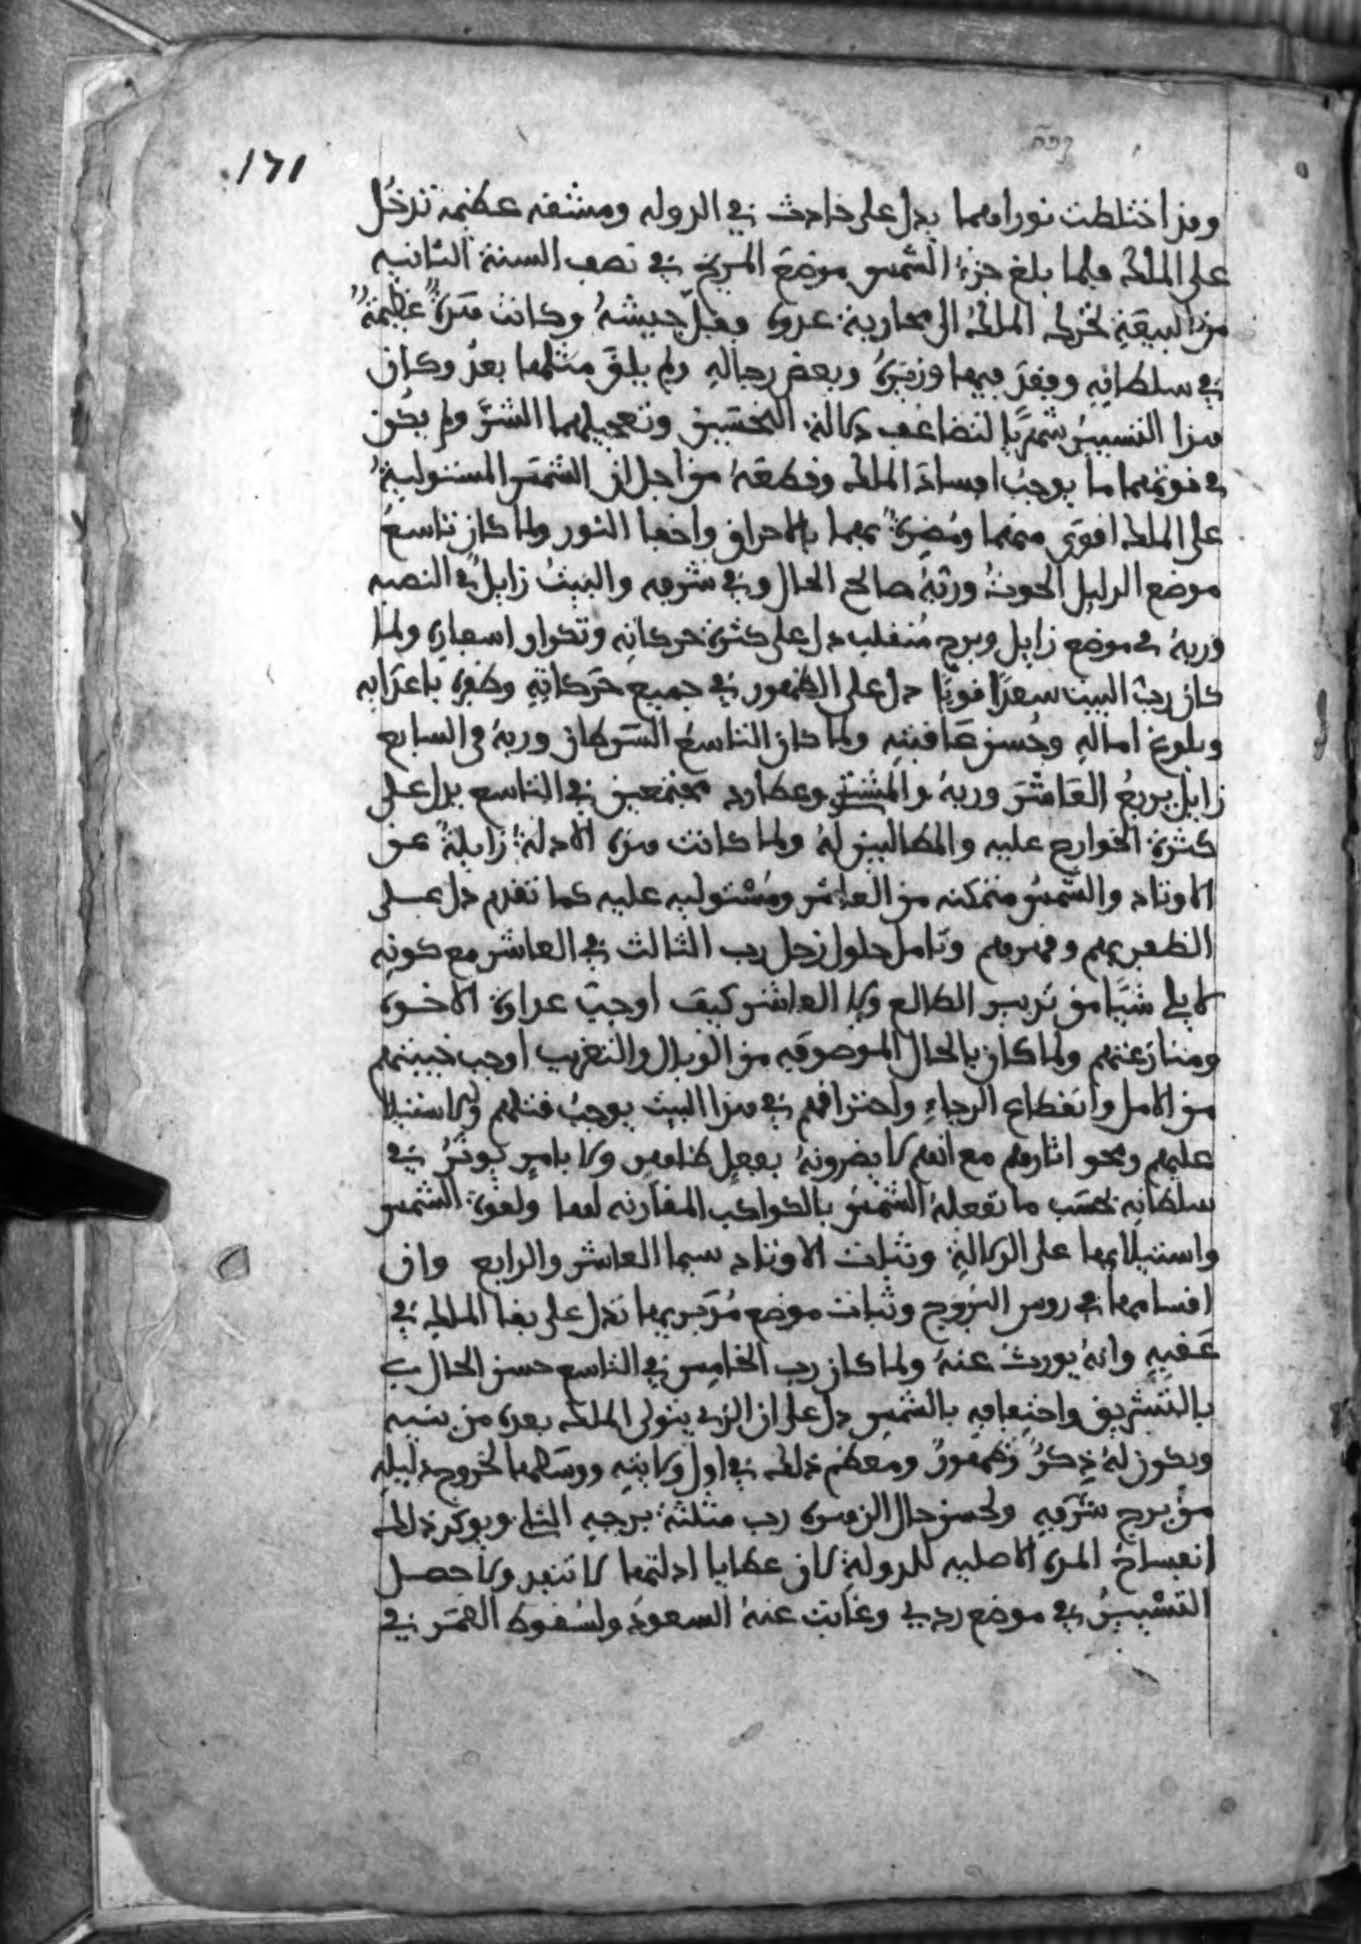 171
وقد اختلطت نوراهما يدل على حادث في الدوله ومشقه عظيمة تدخل
على الملك فلما بلغ جزء الشمس موضع المريخ في نصف السنة الثانيه
من البيعة تحرك الملك الى محاربة عدوه وفل جيشه وكانت فترة عظيمة
في سلطانه وفقد فيها وزيره وبعض رجاله ولم يلق مثلها بعد وكان
هذا التسيير شهر بالتضاعف دلالة النحسين وتعجيلهما الشر ولم يكن
في قوتهما ما يوجب افساد الملك وقطعه من اجل ان الشمس المستولية
على الملك اقوى منهما ومضرة بهما بالاحراق واخفا النور ولما كان تاسع
موضع الدليل الحوت وربه صالح الحال وفي شرفه والبيت زايل في النصبه
وربه في موضع زايل وبرج منقلب دل على كثرة حركاته وتكرار اسفاره ولما
كان رب البيت سعدا قويا دل على الظهور في جميع حركاته وظفره باعدايه
وبلوغ اماله وحسن عاقبته ولما كان التاسع السرطان وربه في السابع
زايل يربع العاشر وربه والمشتري وعطارد مجتمعين في التاسع يدل على
كثرة الخوارج عليه والمطالبين له ولما كانت هذه الادلة زايلة عن
الاوتاد والشمس متمكنه من العاشر ومستوليه عليه كما تقدم دل على
الظفر بهم وقهرهم وتامل حلول زحل رب الثالث في العاشر مع كونه
لا يلي شيا من تدبير الطالع ولا العاشر كيف اوجب عداوة الاخوه
ومنازعتهم ولما كان بالحال الموصوفه من الوبال والتغريب اوجب خيبتهم
من الامل وانقطاع الرجاء واحتراقهم في هذا البيت يوجب قتلهم والاستيلا
عليهم ومحو اثارهم مع انهم لا يضرونه بفعل ظاهر ولا بامر يوثر في
سلطانه بحسب ما تفعله الشمس بالكواكب المقارنه لها ولقوة الشمس
واستيلايها على الدلالة وثبات الاوتاد سيما العاشر والرابع وان
اقسامها في روس البروج وثبات موضع مدبريها تدل على بقا الملك في
عقبه وانه يورث عنه ولما كان رب الخامس في التاسع حسن الحال
بالتشريق واحتفافه بالشمس دل على ان الذي يتولى الملك بعده من بنيه
ويكون له ذكر وظهور ومعظم ذلك في اول ولايته ووسطها لخروج دليله
من برج شرفه ولحسن حال الزهره رب مثلثة برجه الثا ويوكد ذلك
انفساخ المده الاصليه للدولة لان عطايا ادلتها لا تنفد ولا حصل
التسيير في موضع ردي وغابت عنه السعود ولسقوط القمر في